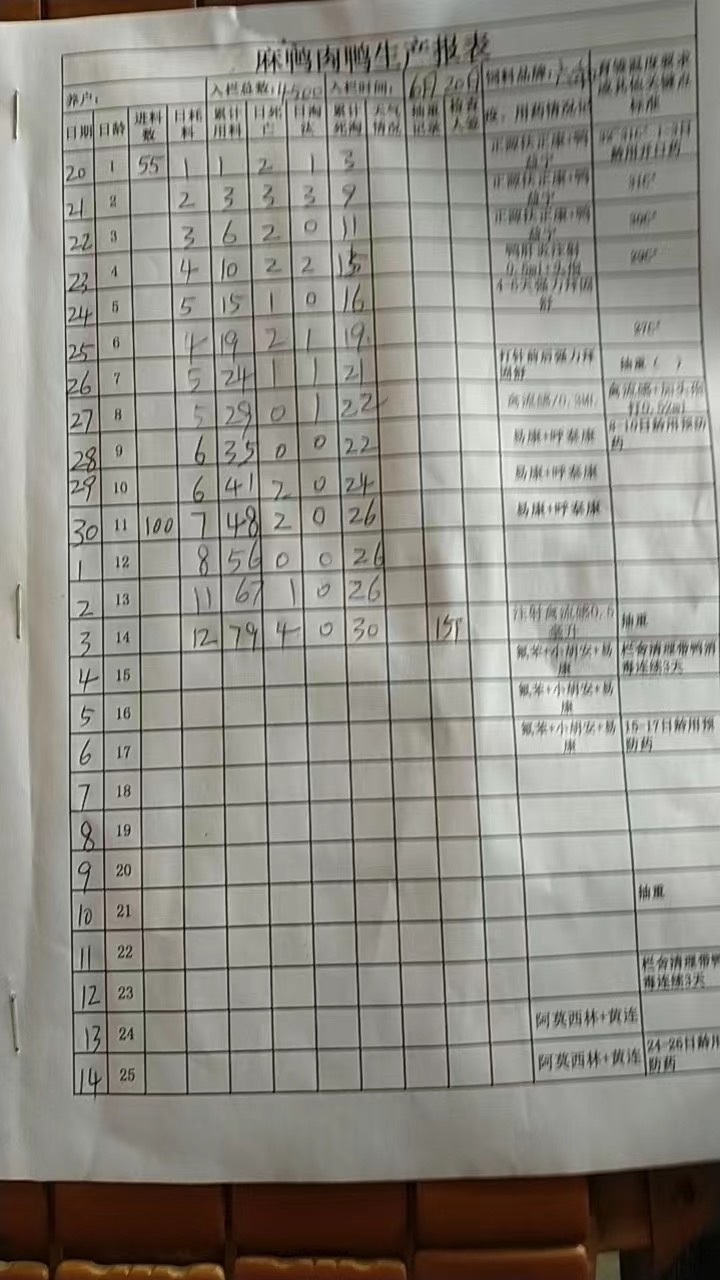 麻鸭肉鸭生产报表
养户： 入栏总数：4500 入栏时间：6月20日 饲料品牌： 育雏温度要求
日期 日龄 进料数 日耗料 累计用料 日死亡 日淘汰 累计死淘 天气情况 抽重记录 检查人签 用药情况记 标准
20 1 55 1 1 2 1 3 正源扶正康+鸭 龄用开口药
21 2 2 3 3 3 9 正源扶正康+鸭 31c°
22 3 3 6 2 0 11 正源扶正康+鸭 30c°
23 4 4 10 2 2 15 鸭肝炎注射 29c°
24 5 5 15 1 0 16 4-6天强力拜固舒
25 6 4 19 2 1 19 27c°
26 7 5 24 1 1 21 打针前后强力拜固舒 抽重（ ）
27 8 5 29 0 1 22 禽流感
28 9 6 35 0 0 22 易康+呼泰康 8-10日龄用预防药
29 10 6 41 2 0 24 易康+呼泰康
30 11 100 7 48 2 0 26 易康+呼泰康
1 12 8 56 0 0 26
2 13 11 67 1 0 26
3 14 12 79 4 0 30 注射禽流感0.5毫升 抽重
4 15 氟苯+小胡安+易康 栏舍清理带鸭消毒连续3天
5 16 氟苯+小胡安+易康
6 17 氟苯+小胡安+易康 15-17日龄用预防药
7 18
8 19
9 20
10 21 抽重
11 22
12 23 栏舍清理带鸭毒连续3天
13 24 阿莫西林+黄连
14 25 阿莫西林+黄连 24-26日龄用防药